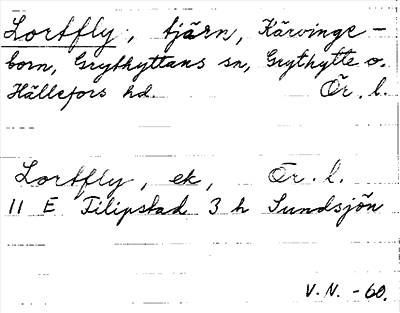 Lortfly, tjärn, Kärvinge-
born, Grythyttans sn, Grythytte o.
Hällefors hd. Ör. l.
Lortfly, ek, Ör. l.
11 E Filipstad 3 h Sundsjön
V.N. -60.